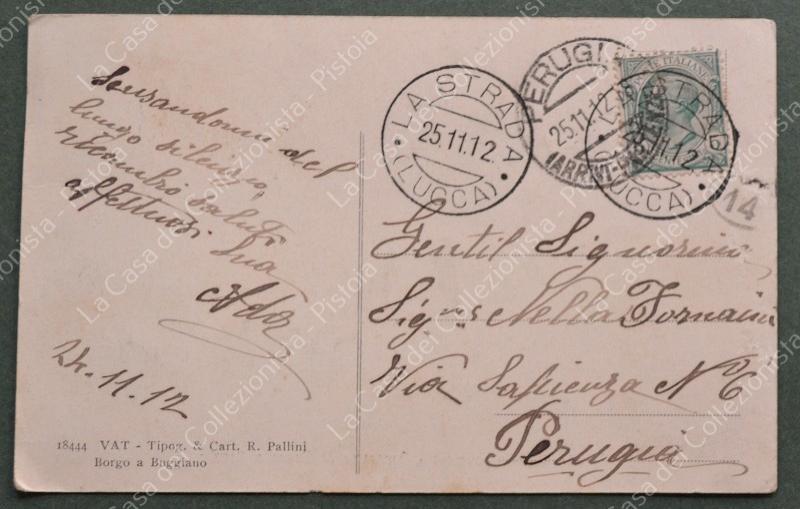 Scusandomi del
lungo silenzio,
ricambio saluti
affettuosi
Sua
Ada
24.11.12
18444 VAT - Tipog. & Cart. R. Pallini
Borgo a Buggiano
LA STRADA
25.11.12
(LUCCA)
PERUGIA
25.11.12
STRADA
11.12
(LUCCA)
POSTE ITALIANE
14
Gentil Signorina
Sigⁿᵃ Nella Fornaini
Via Sapienza Nº 6
Perugia
La Casa del Collezionista - Pistoia